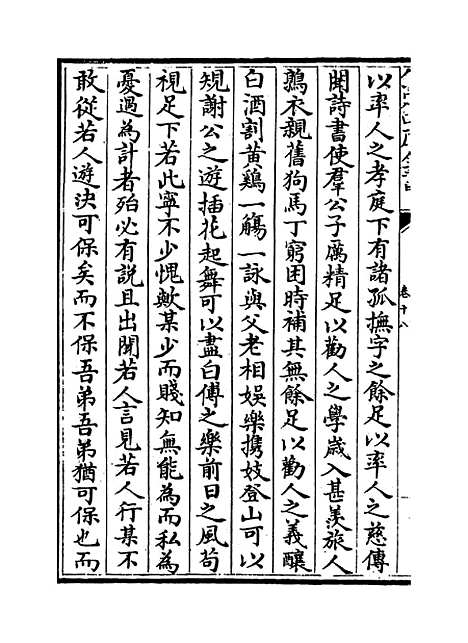 以率人之孝庭下有諸孤撫字之餘足以率人之慈傳
閲詩書使羣公子厲精足以勸人之學歳入甚羡旅人
鶉衣親舊狗馬丁窮困時補其無餘足以勸人之義釀
白酒割黄鷄一觴一詠與父老相娱樂携妓登山可以
規謝公之遊插花起舞可以盡白傅之樂前日之風苟
視足下若此寧不少愧歟某少而賤知無能為而私為
憂過為計者殆必有説且出聞若人言見若人行某不
敢從若人遊決可保矣而不保吾弟吾弟猶可保也而
卷十八